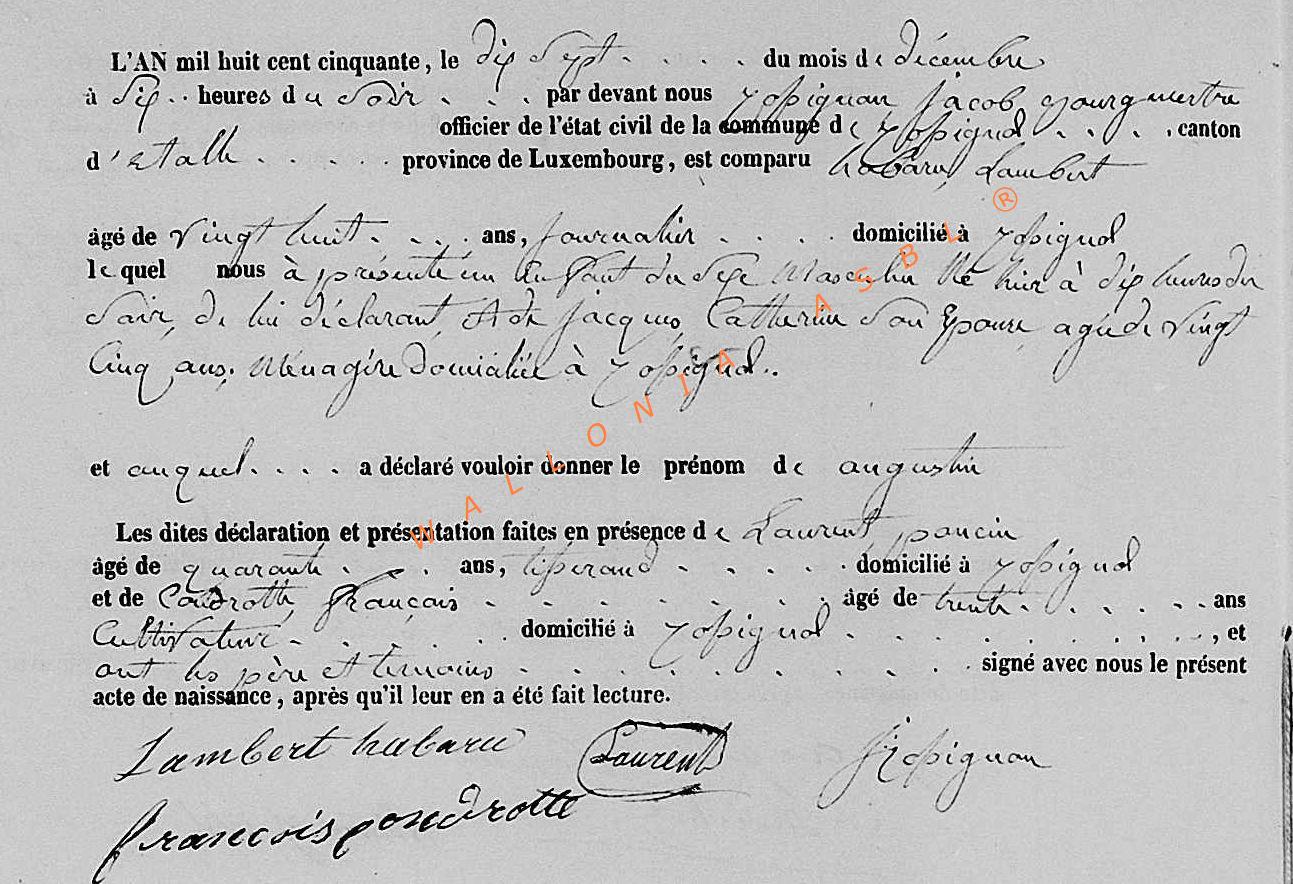 L'AN mil huit cent cinquante, le dix Sept . . . . du mois de décembre
à Six .. heures du Soir . . . par devant nous Rossignon jacob, Bourguemestre
officier de l'état civil de la commune de Rossignol . . . . canton
d'Etalle . . . . . province de Luxembourg, est comparu habaru, Lambert
âgé de Vingt huit . . . . ans, journalier . . . . domicilié à Rossignol
lequel nous à présenté un Enfant du Sexe Masculin Né hier à dix heures du
Soir, de lui déclarant, Et de jacques, Catherine Son Epouse, agée de Vingt
Cinq ans. Ménagère domiciliée à Rossignol..
et auquel . . . . a déclaré vouloir donner le prénom de augustin
Les dites déclaration et présentation faites en présence de Laurent, poncin
âgé de quarante . . . ans, tisserand . . . . . domicilié à Rossignol
et de Condrotte, françois . . . . . . . . . âgé de trente . . . . . . ans
Cultivateur . . . . . domicilié à Rossignol . . . . . . . . . . , et
ont les père et temoins . . . . . . . . . . signé avec nous le présent
acte de naissance, après qu'il leur en a été fait lecture.
Lambert habaru Laurent JRossignon
françois condrotte
WALLONIA ASBL ®